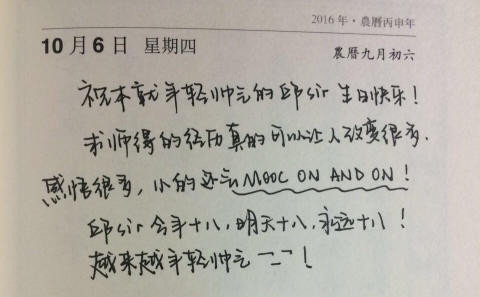 2016年·農曆丙申年
10月6日 星期四
農曆九月初六
祝本就年轻帅气的邱sir生日快乐!
求师得的经历真的可以让人改变很多.
感悟很多,小的还会MOOC ON AND ON!
邱sir今年十八,明天十八,永远十八!
越来越年轻帅气